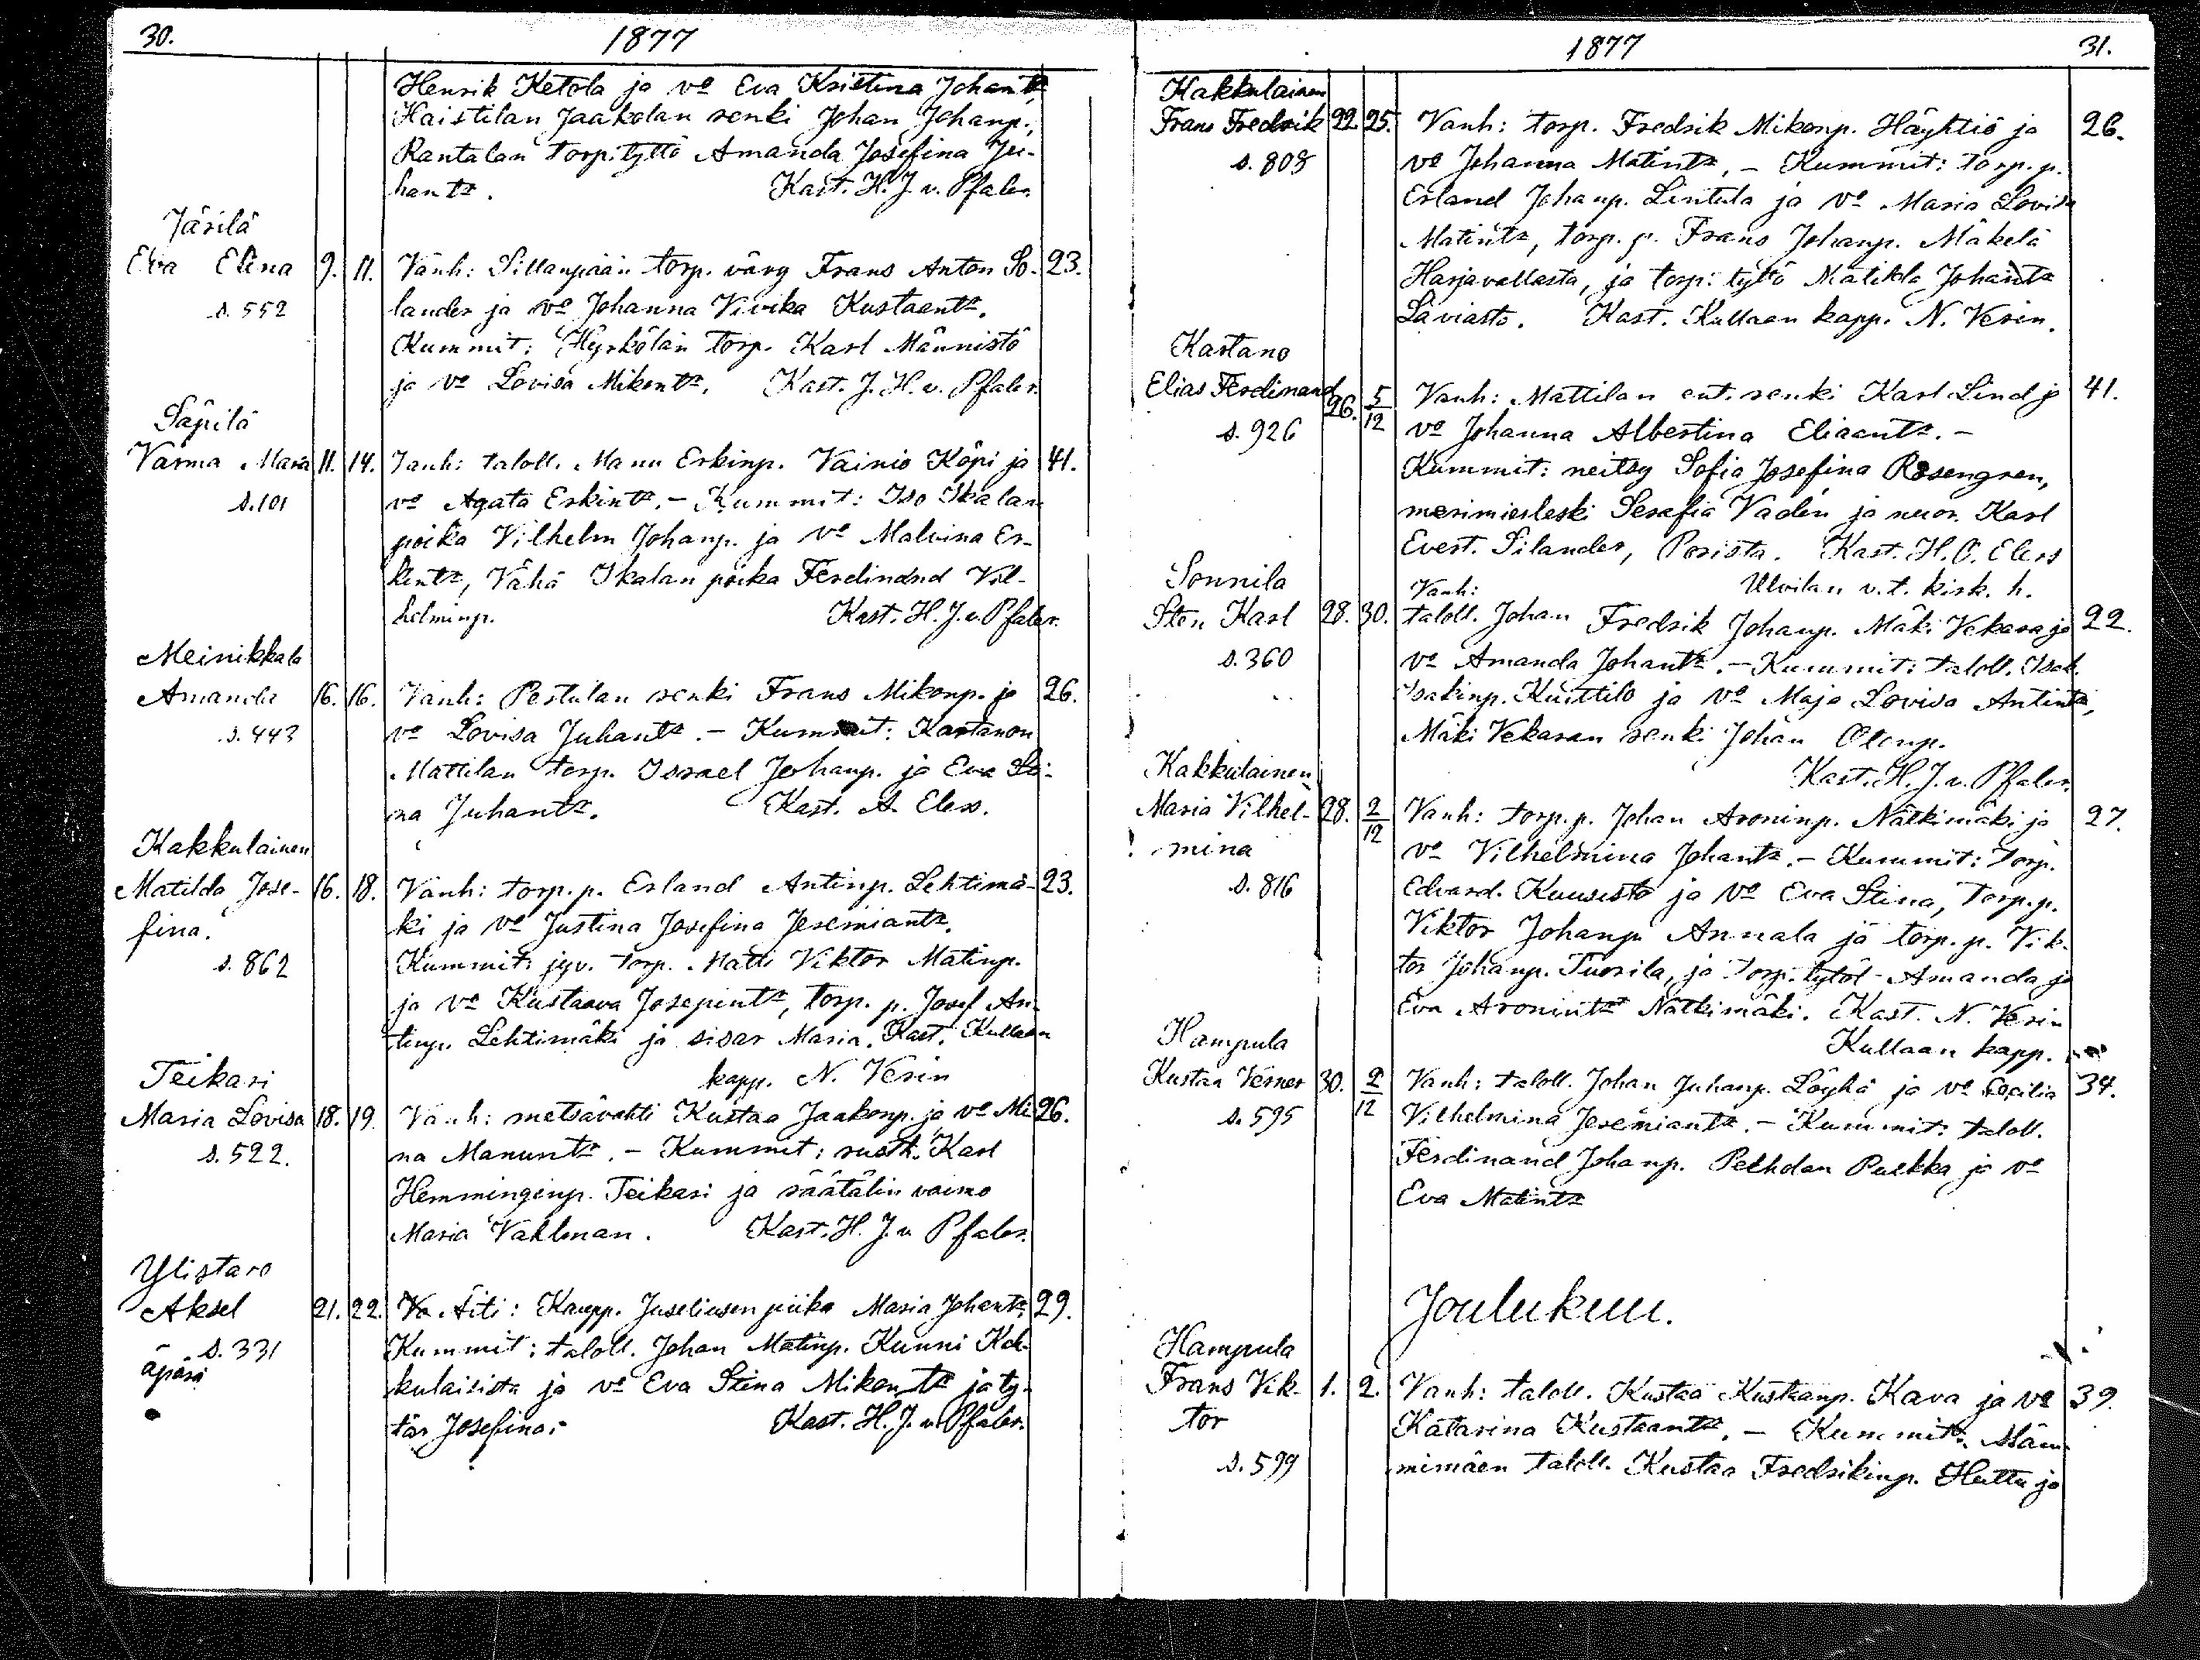 30. 1877
Henrik Ketola ja vo Eva Kristina Johantr,
Haistilan Jaakolan renki Johan Johanp.,
Rantalan torp. tyttö Amanda Josefina Ju-
hantr. Kast. H. J. v. Pfaler.
Järilä
Eva Elina 9. 11. Vanh: Sillanpään torp. vävy Frans Anton So- 23.
s. 552 lander ja vo Johanna Vivika Kustaantr.
Kummit: Hyrkölän torp. Karl Männistö
ja vo Lovisa Mikontr. Kast. J. H. v. Pfaler.
Säpilä
Varma Maria 11. 14. Vanh: taloll. Manu Erkinp. Vainio Köpi ja 41.
s. 101 vo Agata Erkintr. - Kummit: Iso Ikalan
poika Vilhelm Johanp. ja vo Malvina Er-
kintr, Vähä Ikalan poika Ferdinand Vil-
helminp. Kast. H. J. v. Pfaler.
Meinikkala
Amanda 16. 16. Vanh: Pertulan renki Frans Mikonp. ja 26.
s. 443 vo Lovisa Juhantr. - Kummit: Kartanon
Mattilan torp. Israel Johanp. ja Eva Sti-
na Juhantr. Kast. A. Elers.
Kakkulainen
Matilda Jose- 16. 18. Vanh: torp. p. Erland Antinp. Lehtimä- 23.
fina. ki ja vo Justina Josefina Jeremiantr.
s. 862 Kummit: jyv. torp. Matti Viktor Matinp.
ja vo Kustaava Josepintr, torp. p. Josef An-
tinp. Lehtimäki ja sisar Maria. Kast. Kullaan
kapp. N. Verin
Teikari
Maria Lovisa 18. 19. Vanh: metsävahti Kustaa Jaakonp. ja vo Mi- 26.
s. 522. na Manuntr. - Kummit: rusth. Karl
Hemminginp. Teikari ja räätälin vaimo
Maria Vahlman. Kast. H. J. v. Pfaler.
Ylistaro
Aksel 21. 22. Äiti: Kaupp. Juseliusen piika Maria Johantr. 29.
s. 331 Kummit: taloll. Johan Matinp. Kunni Kak-
äpärä kulaisista ja vo Eva Stina Mikontr ja ty-
tär Josefina. Kast. H. J. v. Pfaler.
1877 31.
Kakkulainen
Frans Fredrik 22. 25. Vanh: torp. Fredrik Mikonp. Häyhtiö ja 26.
s. 808 vo Johanna Matintr, - Kummit: torp. p.
Erland Johanp. Lintula ja vo Maria Lovisa
Matintr, torp. p. Frans Johanp. Mäkelä
Harjavallasta, ja torp: tyttö Matilda Johantr
Laviasta. Kast. Kullaan kapp. N. Verin.
Kartano
Elias Ferdinand 26. 5/12 Vanh: Mattilan ent. renki Karl Lind ja 41.
s. 926 vo Johanna Albertina Eliaantr. -
Kummit: neitsy Sofia Josefina Rosengren,
merimiesleski Serafia Vadén ja nuor. Karl
Evert. Silander, Porista. Kast. H. O. Elers
Vanh: Ulvilan v. t. kirk. h.
Sonnila
Sten Karl 28. 30. taloll. Johan Fredrik Johanp. Mäki Vekara ja 22.
s. 360 vo Amanda Johantr. - Kummit: taloll. Isak
Isakinp. Kuittilo ja vo Maja Lovisa Antintr,
Mäki Vekaran renki Johan Olenp.
Kast. H. J. v. Pfaler.
Kakkulainen
Maria Vilhel- 28. 2/12 Vanh: torp. p. Johan Aroninp. Nätkimäki ja 27.
mina vo Vilhelmina Johantr. - Kummit: torp.
s. 816 Edvard. Kuusisto ja vo Eva Stina, torp. p.
Viktor Johanp. Annala ja torp. p. Vik-
tor Johanp. Tuorila, ja torp. tytöt Amanda ja
Eva Aronintr Nätkimäki. Kast. N. Verin
Kullaan kapp.
Hampula
Kustaa Verner 30. 2/12 Vanh: taloll. Johan Juhanp. Löyhä ja vo Cecilia 34.
s. 595 Vilhelmina Jeremiantr. - Kummit: taloll.
Ferdinand Johanp. Palkka ja vo
Eva Matintr
Joulukuu.
Hampula
Frans Vik- 1. 2. Vanh: taloll. Kustaa Kustaanp. Kava ja vo 39.
tor Katarina Kustaantr. - Kummit: Mäm-
s. 599 mimäen taloll. Kustaa Fredrikinp. Huttu ja